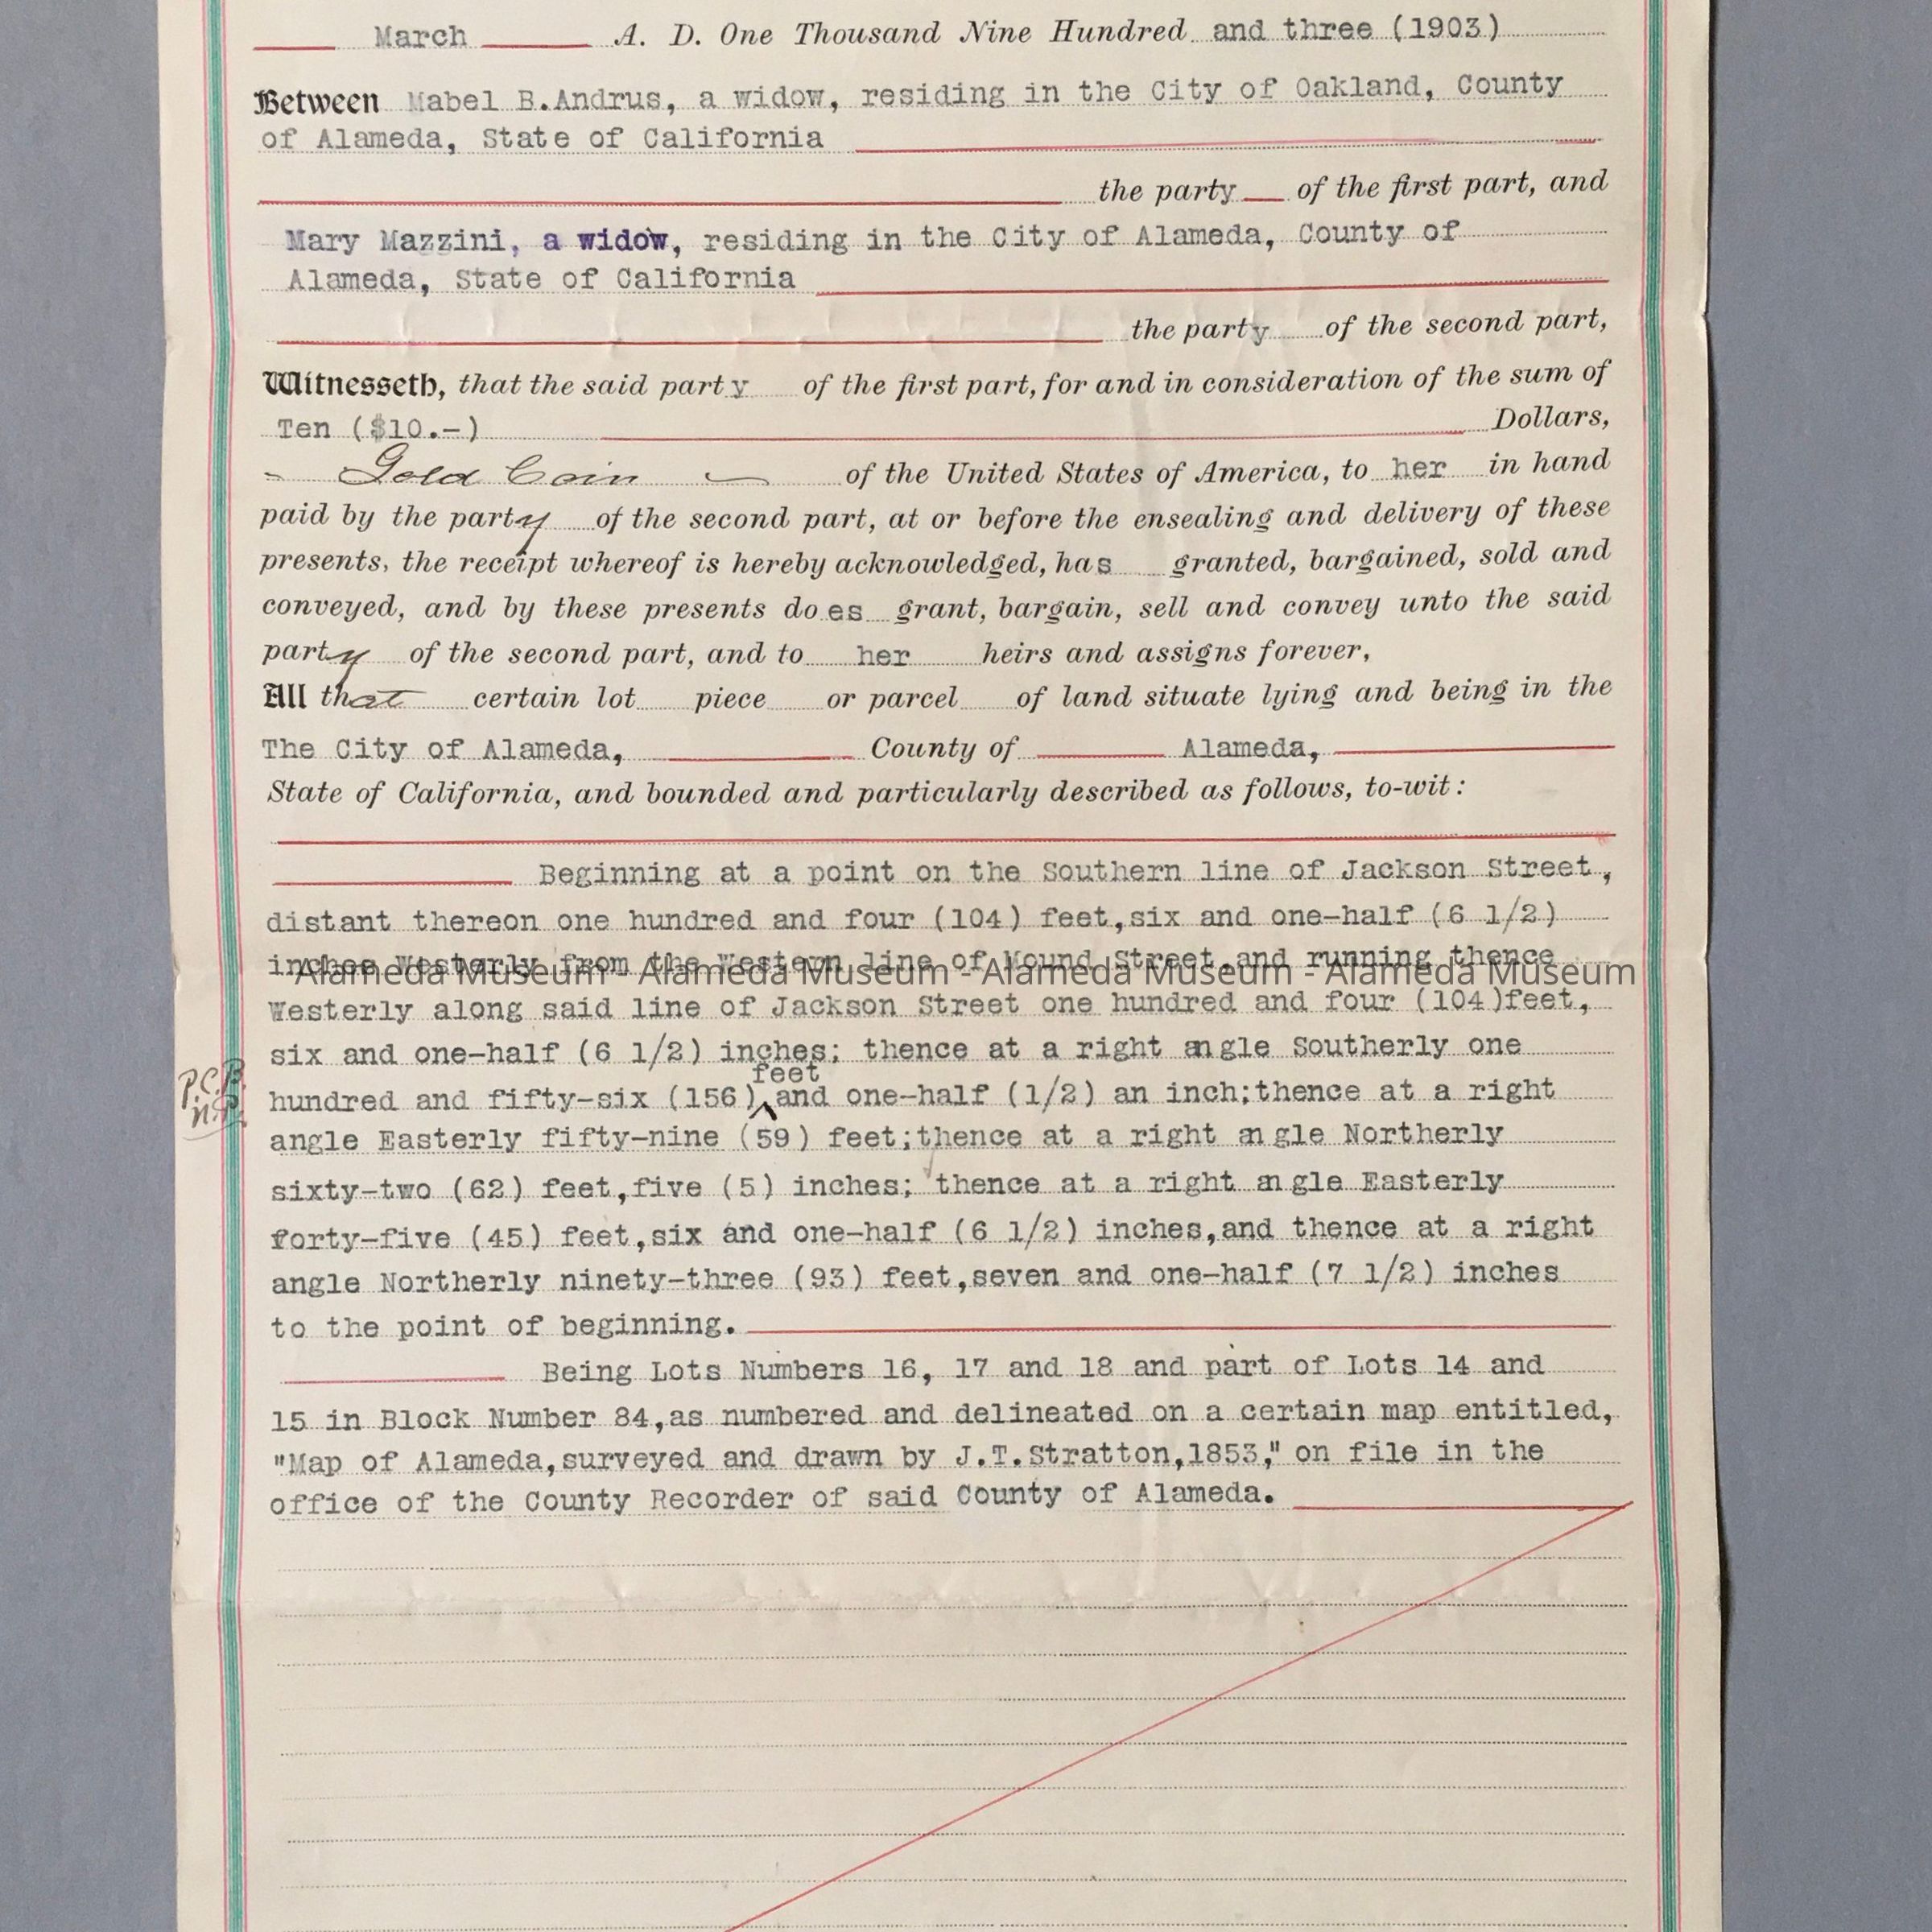 March A. D. One Thousand Nine Hundred and three (1903)
Between Mabel B.Andrus, a widow, residing in the City of Oakland, County
of Alameda, State of California
the party of the first part, and
Mary Mazzini, a widow, residing in the City of Alameda, County of
Alameda, State of California
the party of the second part,
Witnesseth, that the said party of the first part, for and in consideration of the sum of
Ten ($10.-) Dollars,
Gold Coin of the United States of America, to her in hand
paid by the party of the second part, at or before the ensealing and delivery of these
presents, the receipt whereof is hereby acknowledged, has granted, bargained, sold and
conveyed, and by these presents does grant, bargain, sell and convey unto the said
party of the second part, and to her heirs and assigns forever,
All that certain lot piece or parcel of land situate lying and being in the
The City of Alameda, County of Alameda,
State of California, and bounded and particularly described as follows, to-wit:
Beginning at a point on the Southern line of Jackson Street,
distant thereon one hundred and four (104) feet,six and one-half (6 1/2)
inches Westerly from the Western line of Mound Street,and running thence
Alameda Museum - Alameda Museum - Alameda Museum - Alameda Museum
Westerly along said line of Jackson Street one hundred and four (104)feet,
six and one-half (6 1/2) inches; thence at a right angle Southerly one
feet
P.C.B. hundred and fifty-six (156) and one-half (1/2) an inch;thence at a right
N.P. angle Easterly fifty-nine (59) feet;thence at a right angle Northerly
sixty-two (62) feet,five (5) inches; thence at a right angle Easterly
forty-five (45) feet,six and one-half (6 1/2) inches,and thence at a right
angle Northerly ninety-three (93) feet,seven and one-half (7 1/2) inches
to the point of beginning.
Being Lots Numbers 16, 17 and 18 and part of Lots 14 and
15 in Block Number 84,as numbered and delineated on a certain map entitled,
"Map of Alameda,surveyed and drawn by J.T.Stratton,1853," on file in the
office of the County Recorder of said County of Alameda.